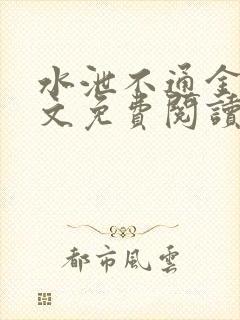 水泄不通全
文免費閱讀
都市風雲